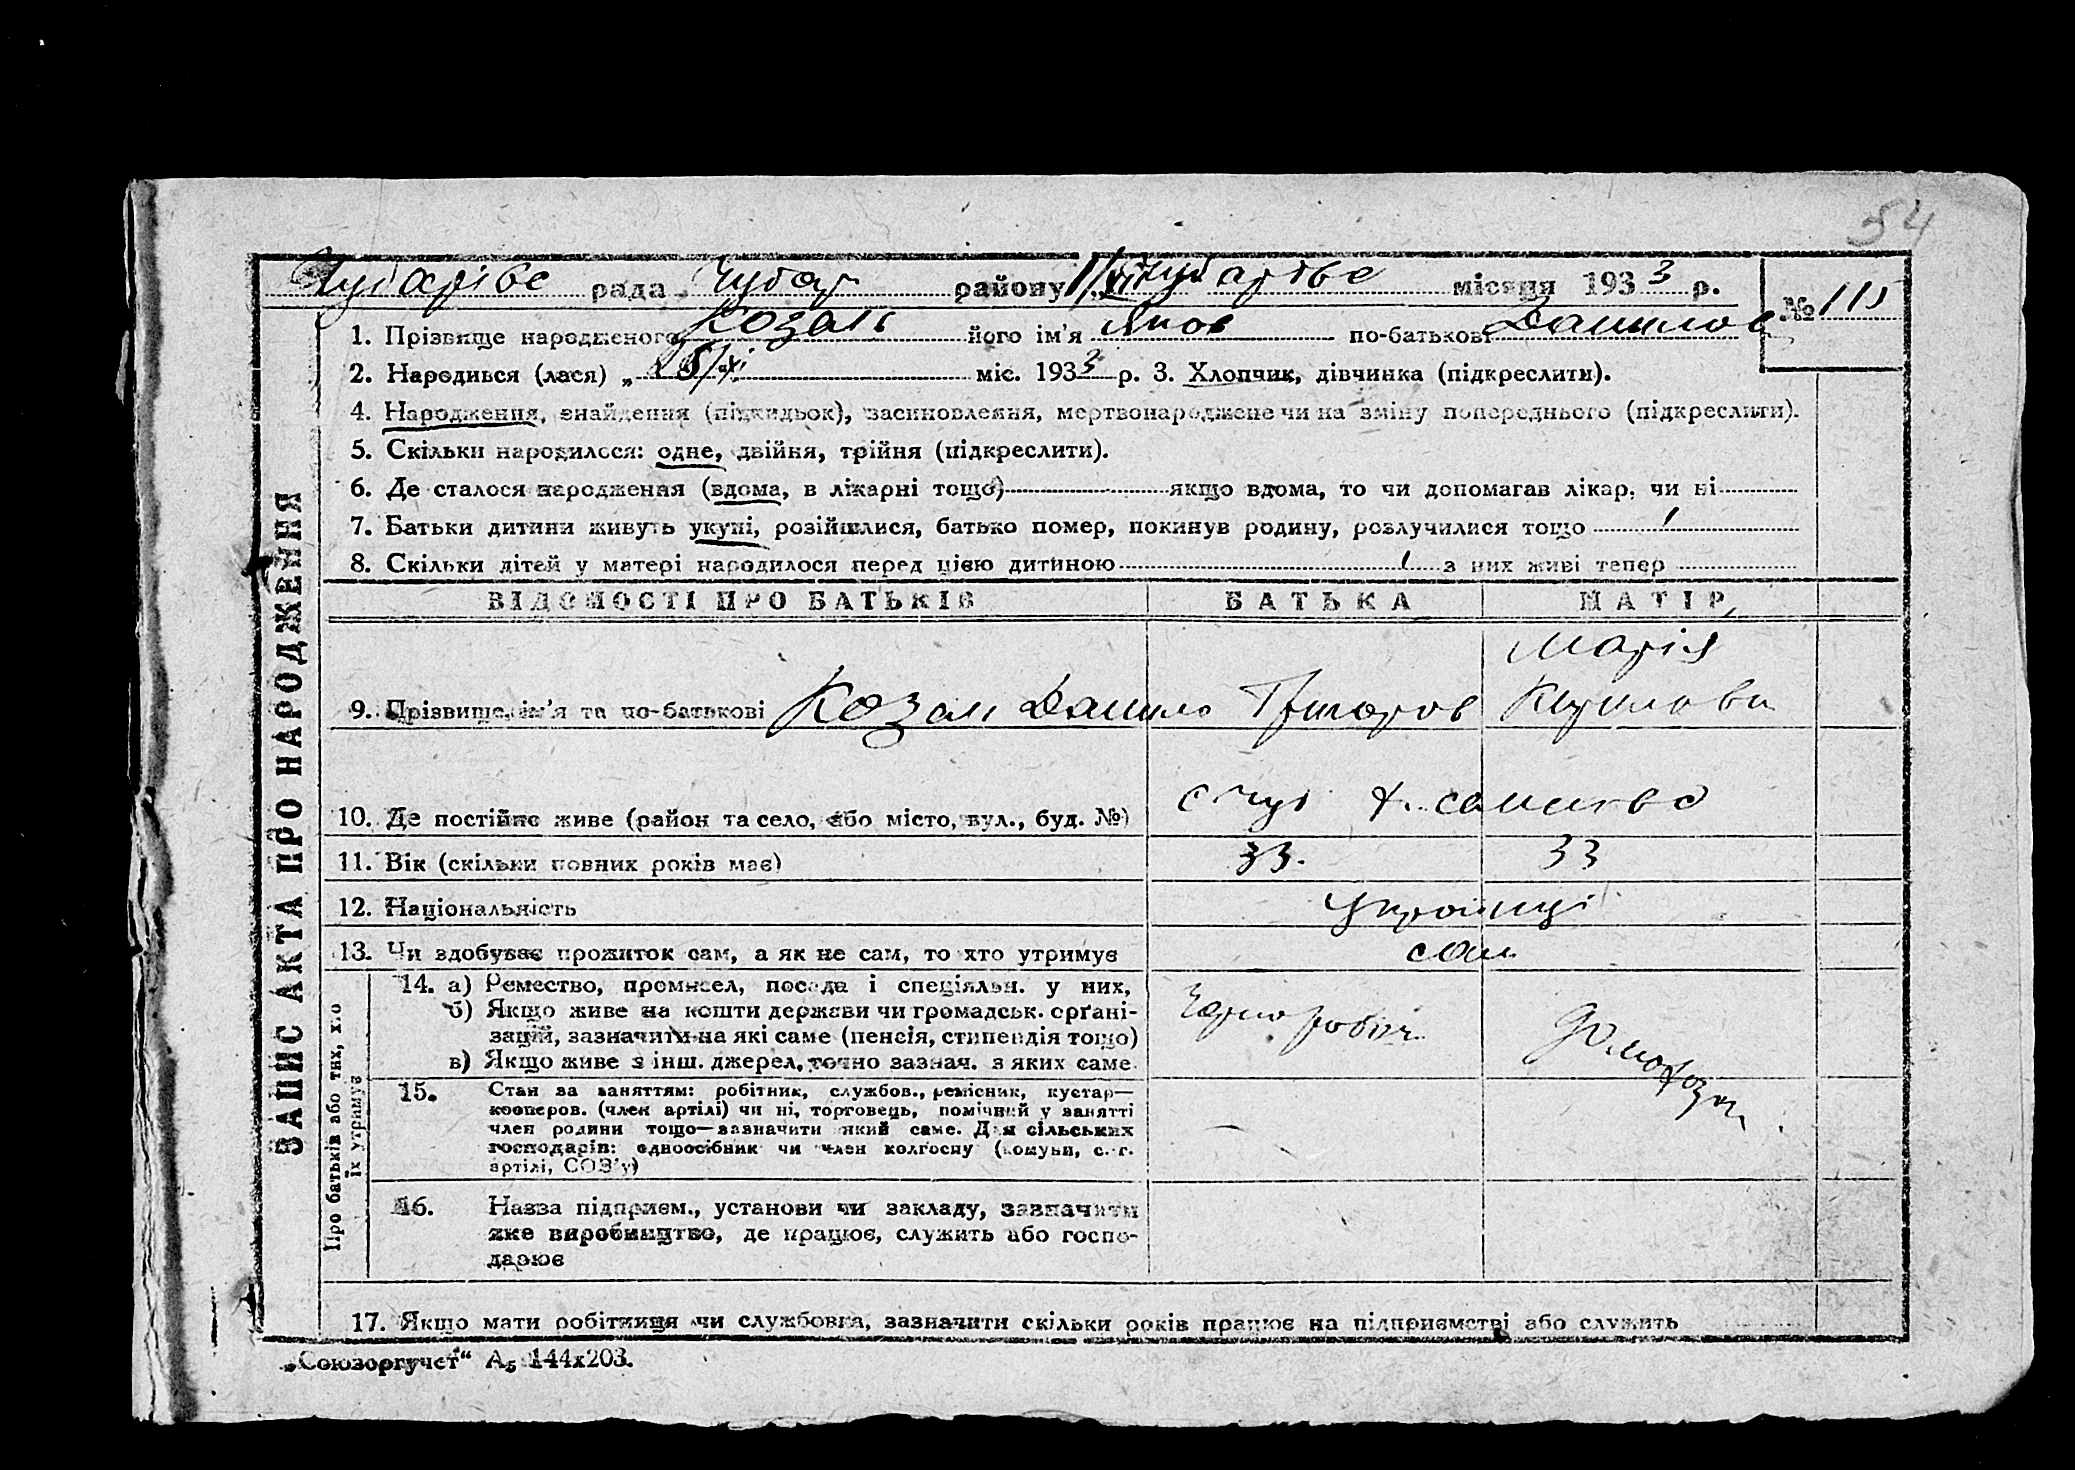 54
Чубарівс рада Чубар району місяця 1933 р. № 115
ЗАПИС АКТА ПРО НАРОДЖЕННЯ
1. Прізвище народженого його ім'я Яков по-батькові Данилов
2. Народився (лася) „ міс. 1933 р. 3. Хлопчик, дівчинка (підкреслити).
4. Народження, знайдення (підкидьок), засиновлення, мертвонароджене чи на зміну попереднього (підкреслити).
5. Скільки народилося: одне, двійня, трійня (підкреслити).
6. Де сталося народження (вдома, в лікарні тощо) якщо вдома, то чи допомагав лікар, чи ні
7. Батьки дитини живуть укупі, розійшлися, батько помер, покинув родину, розлучилися тощо
8. Скільки дітей у матері народилося перед цією дитиною 1 з них живі тепер
ВІДОМОСТІ ПРО БАТЬКІВ БАТЬКА МАТІР
Марія
9. Прізвище, ім'я та по-батькові Данило Григоров Кирилова
10. Де постійно живе (район та село, або місто, вул., буд. №)
11. Вік (скільки повних років має) 33. 33
12. Національність Українці
13. Чи здобуває прожиток сам, а як не сам, то хто утримує сам
Про батьків або тих, хто їх утримує
14. а) Ремество, промисел, посада і спеціяльн. у них,
б) Якщо живе на кошти держави чи громадськ. орґані-
зацій, зазначити на які саме (пенсія, стипендія тощо)
в) Якщо живе з інш. джерел, точно зазнач. з яких саме
Чорноробич Домохоз
15. Стан за заняттям: робітник, службов., ремісник, кустар—
кооперов. (член артілі) чи ні, торговець, помічний у занятті
член родини тощо—зазначити який саме. Для сільських
господарів: одноосібник чи член колгоспу (комуни, с.-г.
артілі, СОЗ'у)
16. Назва підприєм., установи чи закладу, зазначити
яке виробництво, де працює, служить або госпо-
дарює
17. Якщо мати робітниця чи службовка, зазначити скільки років працює на підприємстві або служить
„Союзоргучет“ А₅ 144х203.